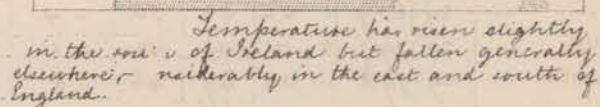 Temperature has risen slightly
in the of Ireland but fallen generally
elsewhere, in the east and south of
England.